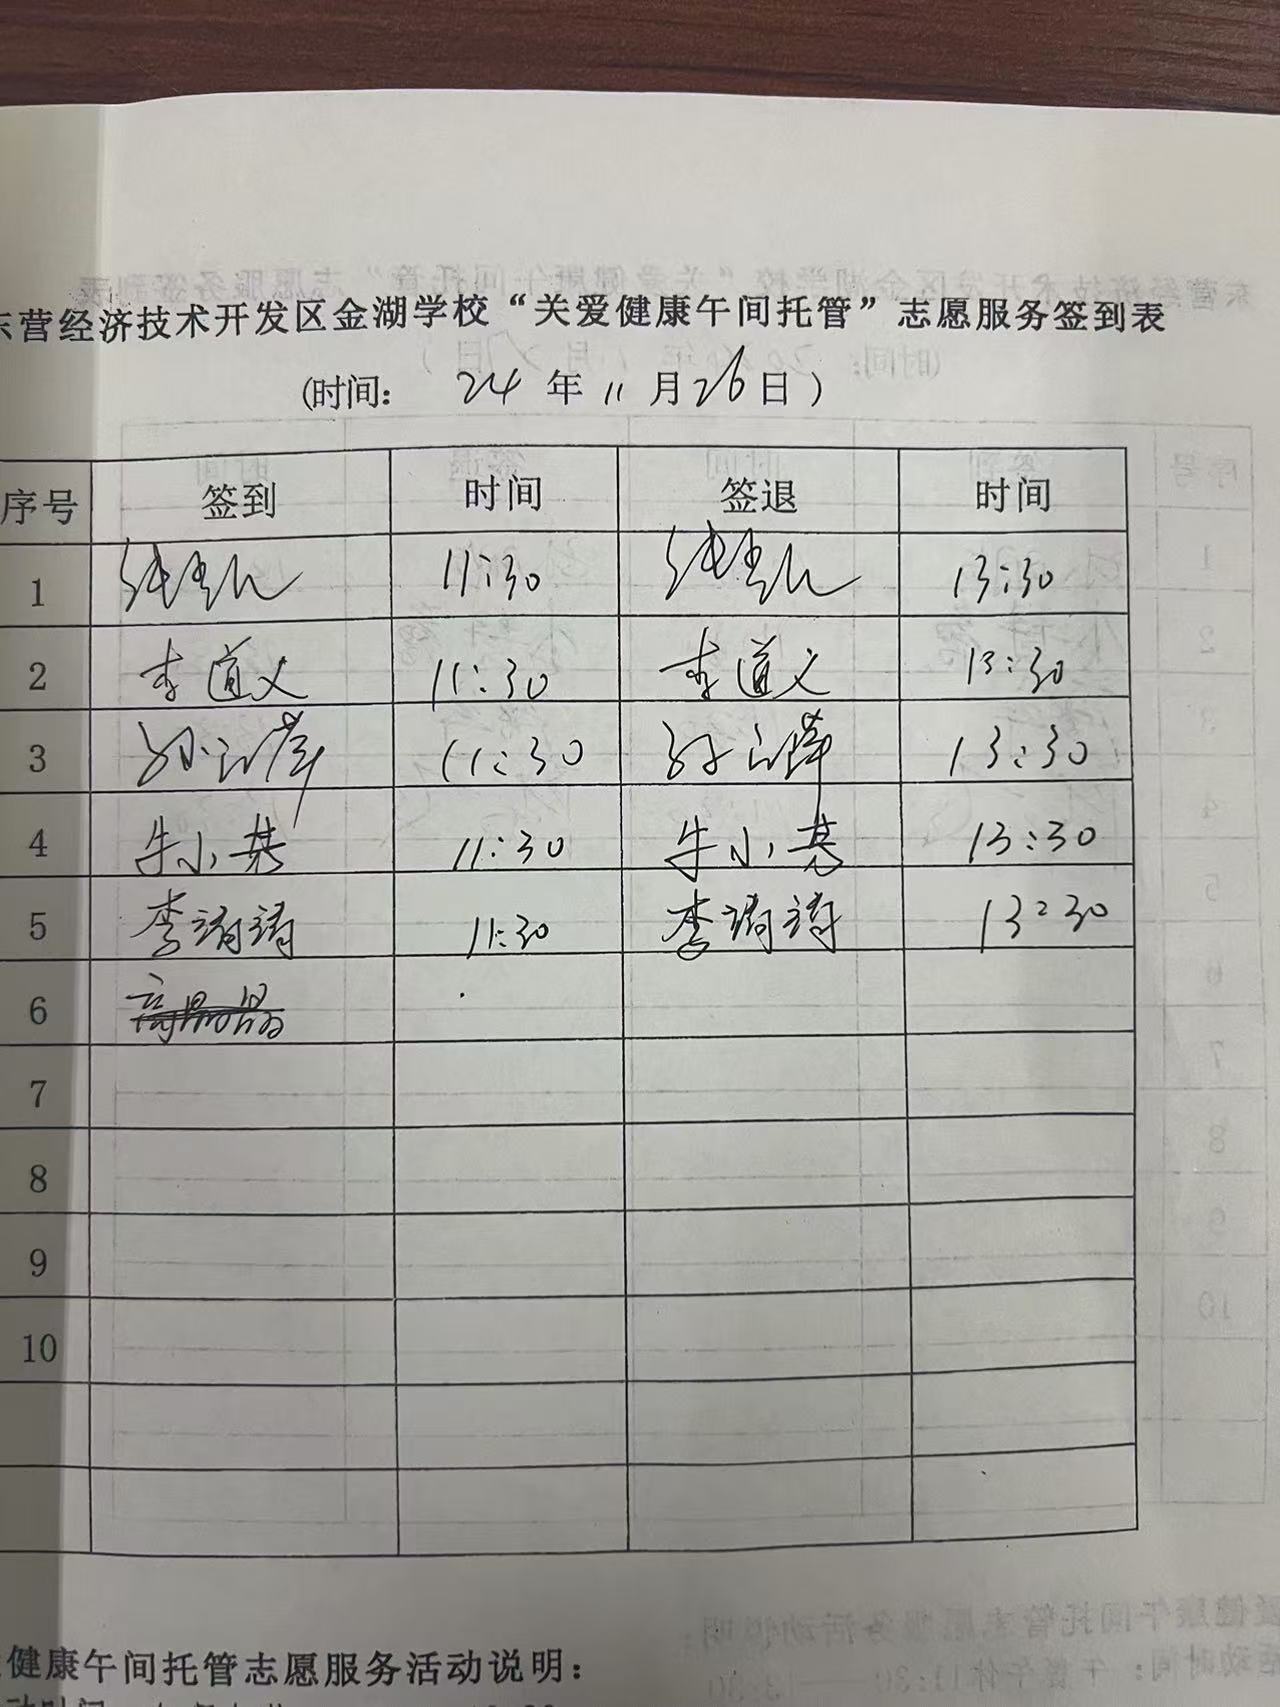 东营经济技术开发区金湖学校“关爱健康午间托管”志愿服务签到表
(时间： 24 年 11 月 26 日 )
序号 签到 时间 签退 时间
1 11:30 13:30
2 李道义 11:30 李道义 13:30
3 11:30 13:30
4 牛小 11:30 牛小 13:30
5 李 11:30 李 13:30
6
7
8
9
10
健康午间托管志愿服务活动说明：